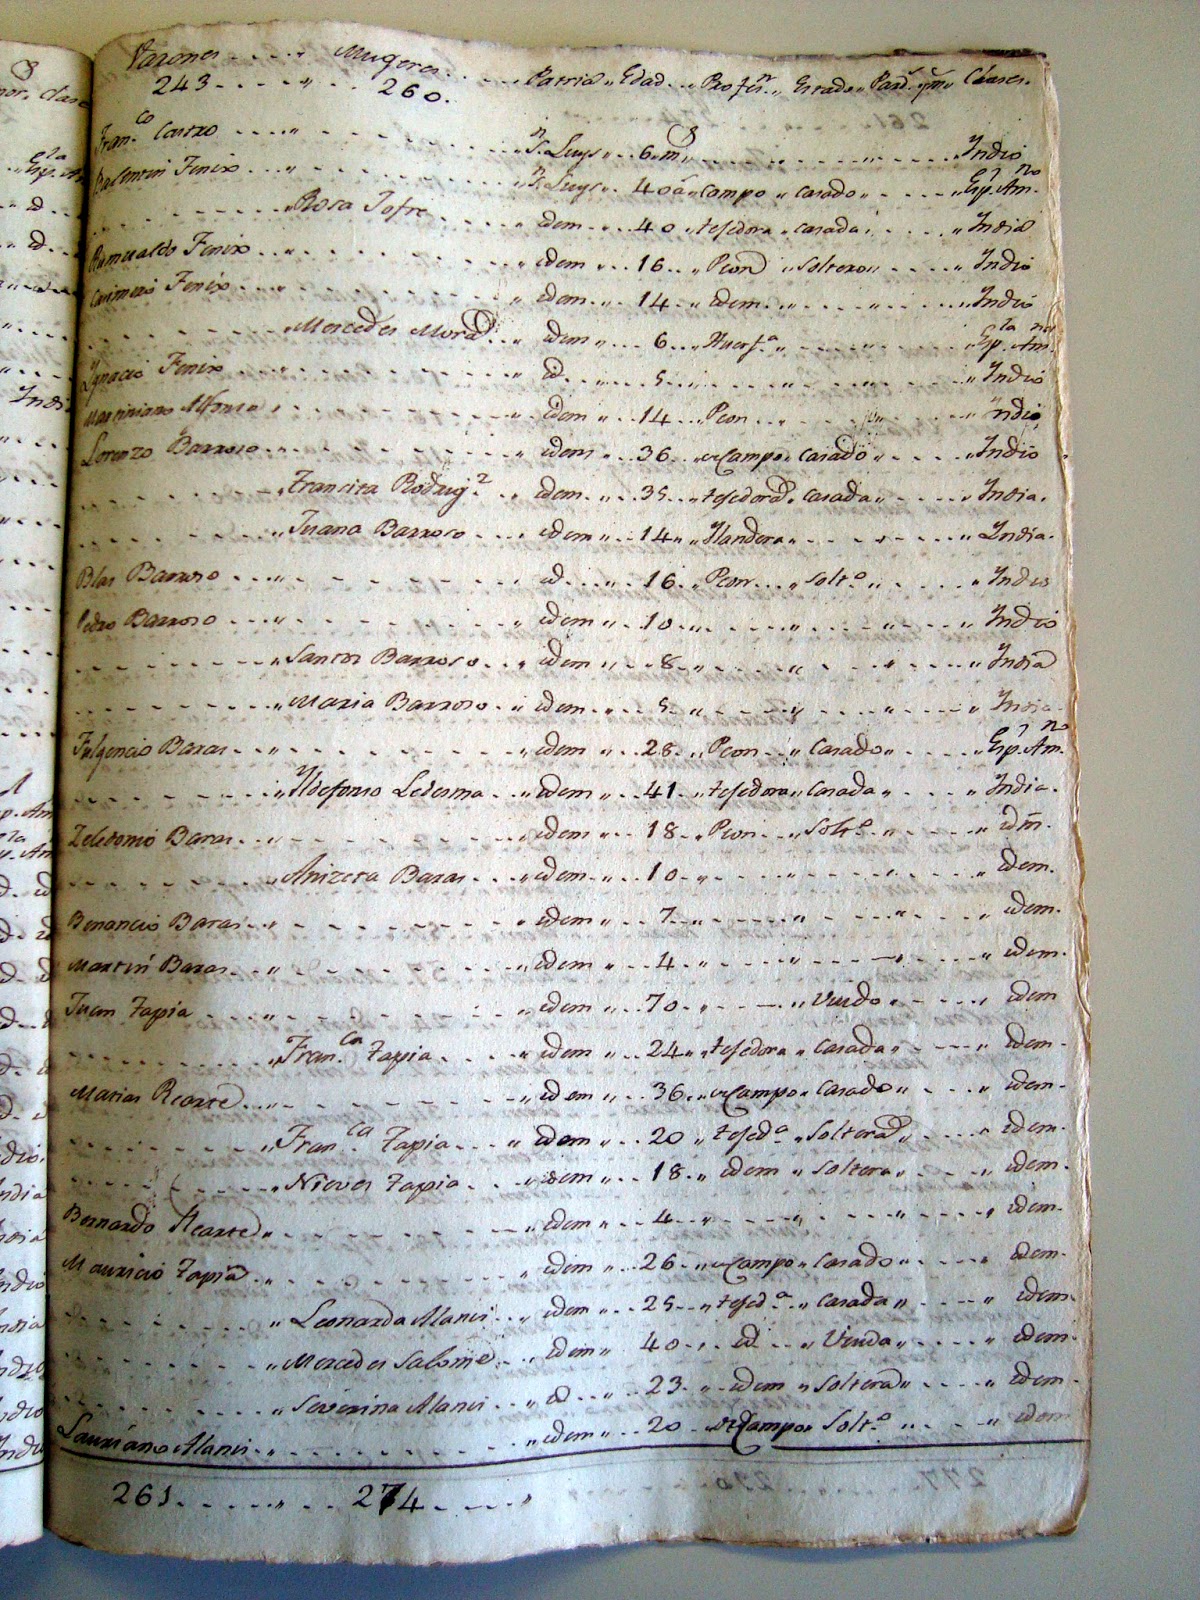 Varones Mugeres Patria Edad Profes.n Estado Pard.s y m.s Clases.
243 260.
Fran.co Castro S.n Luys 6 m.s Indio
Balentin Fenix S.n Luys 40 a.s campo casado Esp. Am.no
Rosa Jofre idem 40 tejedora casada India
Rumualdo Fenix idem 16 Peon soltero Indio
Casimero Fenix idem 14 idem Indio
Mercedes Mora idem 6 Huerf.a Esp.la Am.na
Ygnacio Fenix id. 5 Indio
Marciniano Alfonso idem 14 Peon Indio
Lorenzo Barroso idem 36 Campo Casado Indio
Francisca Rodrig.z idem 35 tejedora casada India.
Juana Barroso idem 14 Ylandera India.
Blas Barroso id. 16 Peon solt.o Indio
Pedro Barroso idem 10 Indio
Santos Barroso idem 8 India
Maria Barroso idem 5 India
Fulgencio Baras idem 28 Peon Casado Esp. Am.no
Yldefonso Ledesma idem 41 tejedora Casada India.
Zeledonio Baras idem 18 Peon Solt.o idm.
Anizeta Baras idem 10 idem.
Benancio Baras idem 7 idem.
Martin Baras idem 4 idem.
Juan Tapia idem 70 Viudo idem
Fran.ca Tapia idem 24 tejedora casada idem
Matias Rearte idem 36 Campo casado idem
Fran.ca Tapia idem 20 tejed.a soltera idem
Nieves Tapia idem 18 idem soltera idem
Bernardo Rearte idem 4 idem
Mauricio Tapia idem 26 Campo casado idem
Leonarda Alanis idem 25 tejed.a casada idem
Mercedes Salome idem 40 id Viuda idem
Severina Alanis id 23 idem soltera idem
Lauriano Alanis idem 20 Campo Solt.o idem
261 274